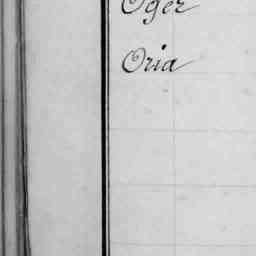 Oger
Oria